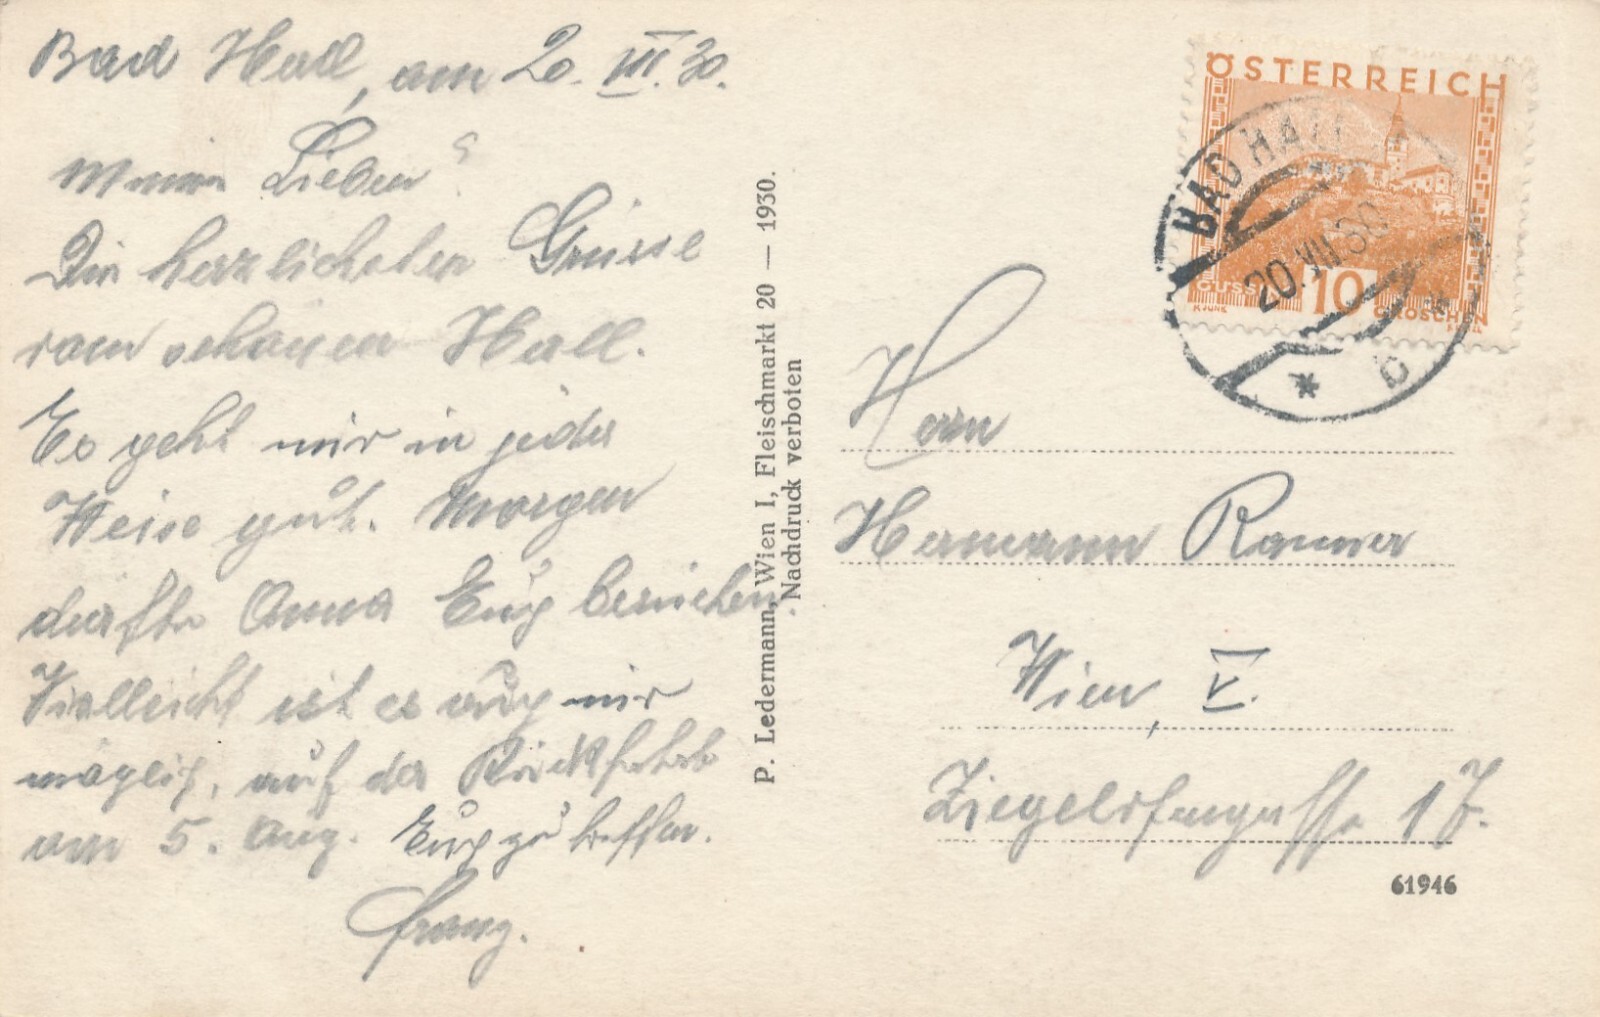 Bad Hall, am 20. VII. 30.
Meine Lieben!
Die herzlichsten Grüsse
vom schönen Hall.
Es geht mir in jeder
Weise gut. Morgen
dürfte Anna Euch besuchen.
Vielleicht ist es auch mir
möglich, auf der Rückfahrt
am 5. Aug. Euch zu treffen.
Franz.
P. Ledermann, Wien I, Fleischmarkt 20 — 1930.
Nachdruck verboten
ÖSTERREICH
10
GROSCHEN
BAD HALL
20.VII.30
* b
Herrn
Hermann
Wien, V.
Ziegelofengasse 17.
61946